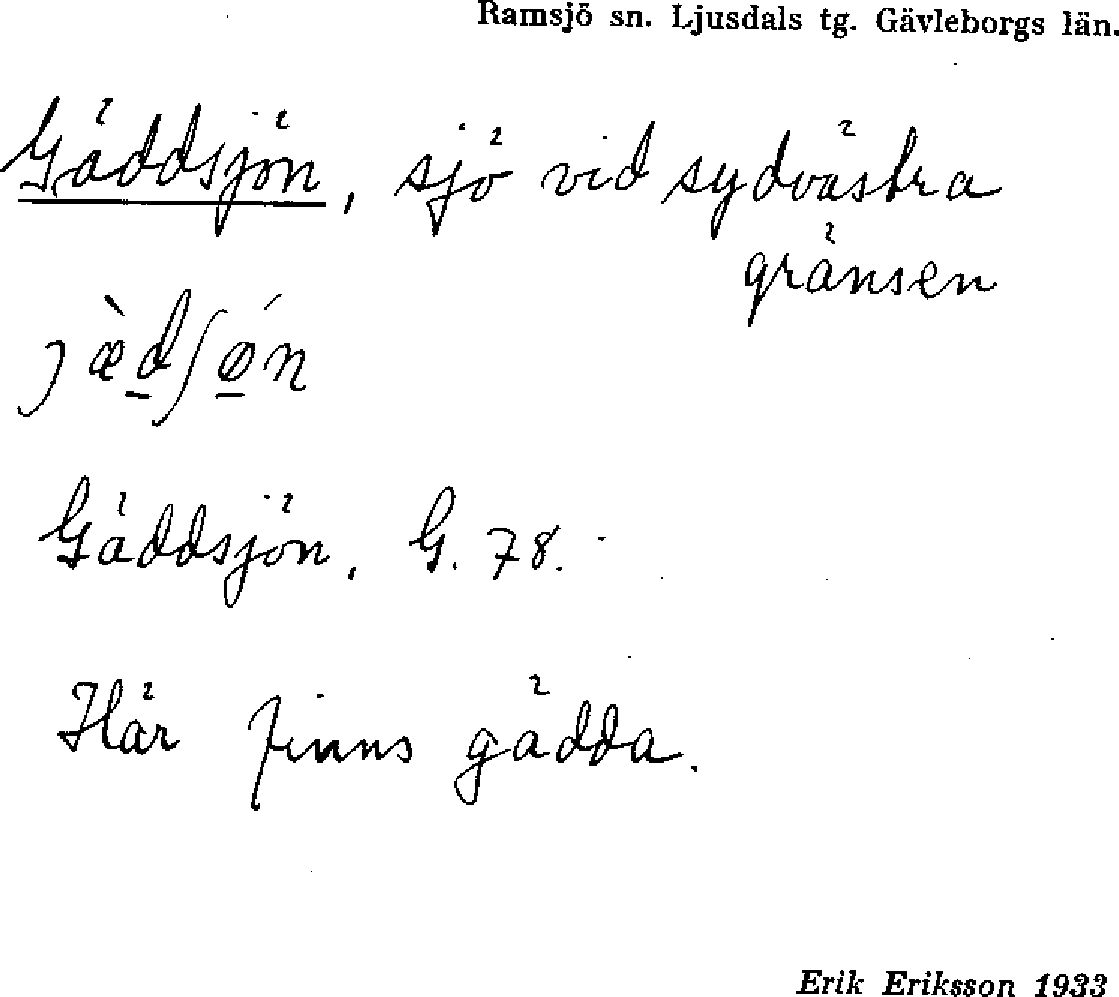 Ramsjö sn. Ljusdals tg. Gävleborgs län.
Gäddsjön, sjö vid sydvästra
gränsen
jæ̀d̲ʃǿ̲n
Gäddsjön, G. 78.
Här finns gädda.
Erik Eriksson 1933